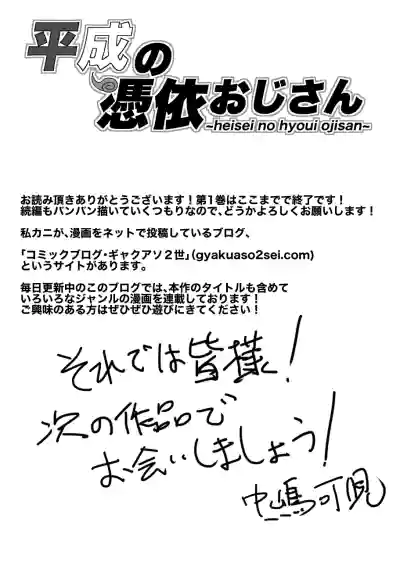 平成の
憑依おじさん
~heisei no hyoui ojisan~
お読み頂きありがとうございます！第1巻はここまでで終了です！
続編もバンバン描いていくつもりなので、どうかよろしくお願いします！
私カニが、漫画をネットで投稿しているブログ、
「コミックブログ・ギャクアソ２世」（gyakuaso2sei.com）
というサイトがあります。
毎日更新中のこのブログでは、本作のタイトルも含めて
いろいろなジャンルの漫画を連載しております！
ご興味のある方はぜひぜひ遊びにきてください！
それでは皆様！
次の作品で
お会いしましょう！
中嶋可児